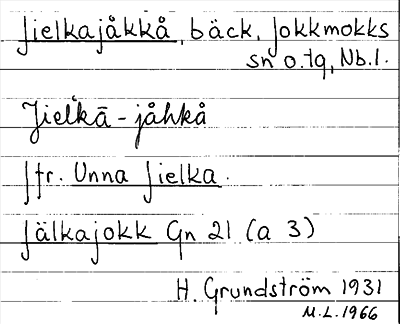 Jielkajåkkå, bäck, Jokkmokks
sn o. tg, Nb.l.
Jielˈkā-jåhkå
Jfr. Unna Jielka.
Jälkajokk Gn 21 (a 3)
H. Grundström 1931
M.L. 1966